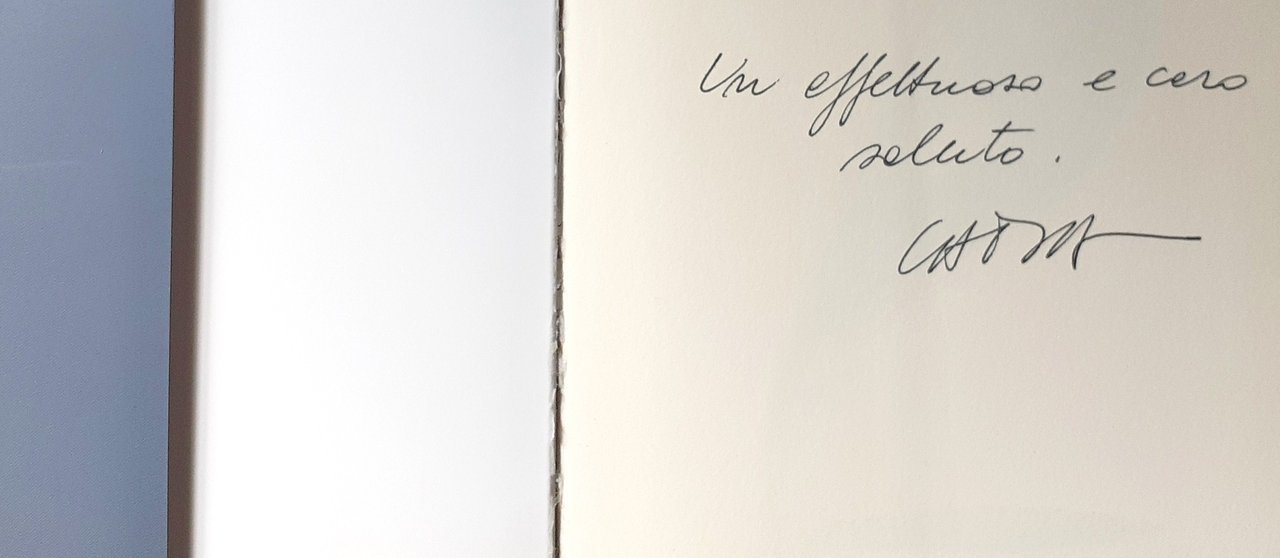 Un affettuoso e caro
saluto.